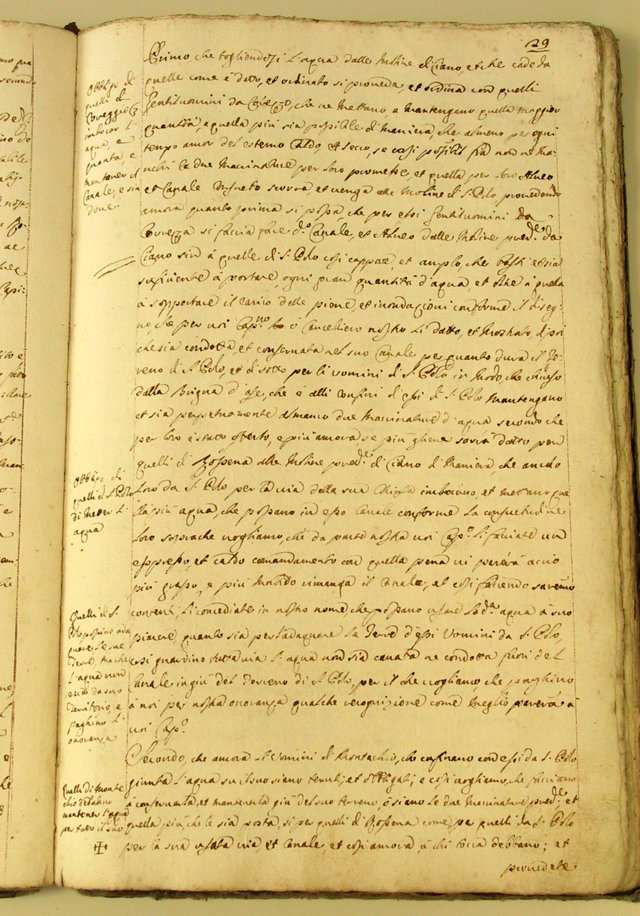 29
Primo che togliendosi l'aqua dalle Moline di Ciano, et che cade da
quelle come è dotto, et ordinato si proveda, et ordina con quelli
Gentiluomini da Corezzo, che ne mettano e mantengano quella maggior
quantità, e quella più sia possibile di maniera, che almeno per ogni
tempo ancor del estremo caldo, et secco, se così possibil fia non ne ma
nchi le due Macinature per loro promesse, et quella per loro Alveo
et Canale consueto scorra, et venga alle Moline di S. Polo provedendo
ancora quanto prima si possa, che per essi Gentiluomini da
Correzza si faccia fare d.o Canale, et Alveo dalle Moline pred.e da
Ciano sino à quelle di S. Polo così cappace et amplo, che basti et sia
sufficiente à portare ogni gran quantità d'aqua et atto à quella
à sopportare il carico delle pione, et inondazioni conforme il diseg
no, che per voi Cap.no ò Canceliero nostro li datto, et mostrato, di poi
che sia condotta, et conservata nel suo Canale per quanto dura il Te
reno di S. Polo, et di sotto per li uomini di S. Polo in modo, che
dalla che è alli confini di essi di S. Polo mantengano
et sia perpetuamente almanco due Macinature d'aqua secondo che
per loro è stato offerto, e più ancora se più gliene sarà datto per
quelli di Rossena alle Moline pred.e di Ciano di maniera che anche
loro da S. Polo per la via della sua Chiusa imbocano, et mettano que
lla più aqua, che possano in esso Canale conforme la consuetudine
loro sopra che vogliamo, che da parte nostra voi Cap.o li facciate un
espresso, et caldo comandamento con quella pena vi parerà acciò
più grasso, e più morbido rimanga il Canale; et così facendo saremo
contenti, li comediate in nostro nome che possano usare la d.a aqua à suo
piacere quanto sia per ladaquare le Terre d'essi uomini da S. Polo,
così guardino tuttavia l'aqua non sia cavata ne condotta fuori del
Canale in giù del Terreno di S. Polo, per il che vogliamo, che paghino
à noi per nostra onoranza qualche recognizione come meglio parerà à
voi Cap.o
Secondo, che ancora l'Uomini di Montechio, che confinano con essi da S. Polo
giunta l'aqua su il suo siano tenuti, et obligati, e così vogliamo, che facciano
à conservarla, et mantenerla giù del suo terreno, ò siano le due Macinature pred.e et
quella più, che le sia porta, sì per quelli di Rossena come, per quelli da S. Polo
per la sua usata via et Canale, et così ancora à chi tocca debbano; et
provedete
Obbligo di
quelli di
Correggio
l'
aqua, e
quanta, e
mantener il
Canale, e sia
dove
Obbligo di
quelli di S. Polo
di metter l'
aqua
Quelli di S.
Polo possino ada
quare le sue
Terre, ma che
l'aqua non
esca da suo
Territorio, e
paghino l'
onoranza
Quelli di Monte
chio debbano
mantener l'aqua
per tutto il suo